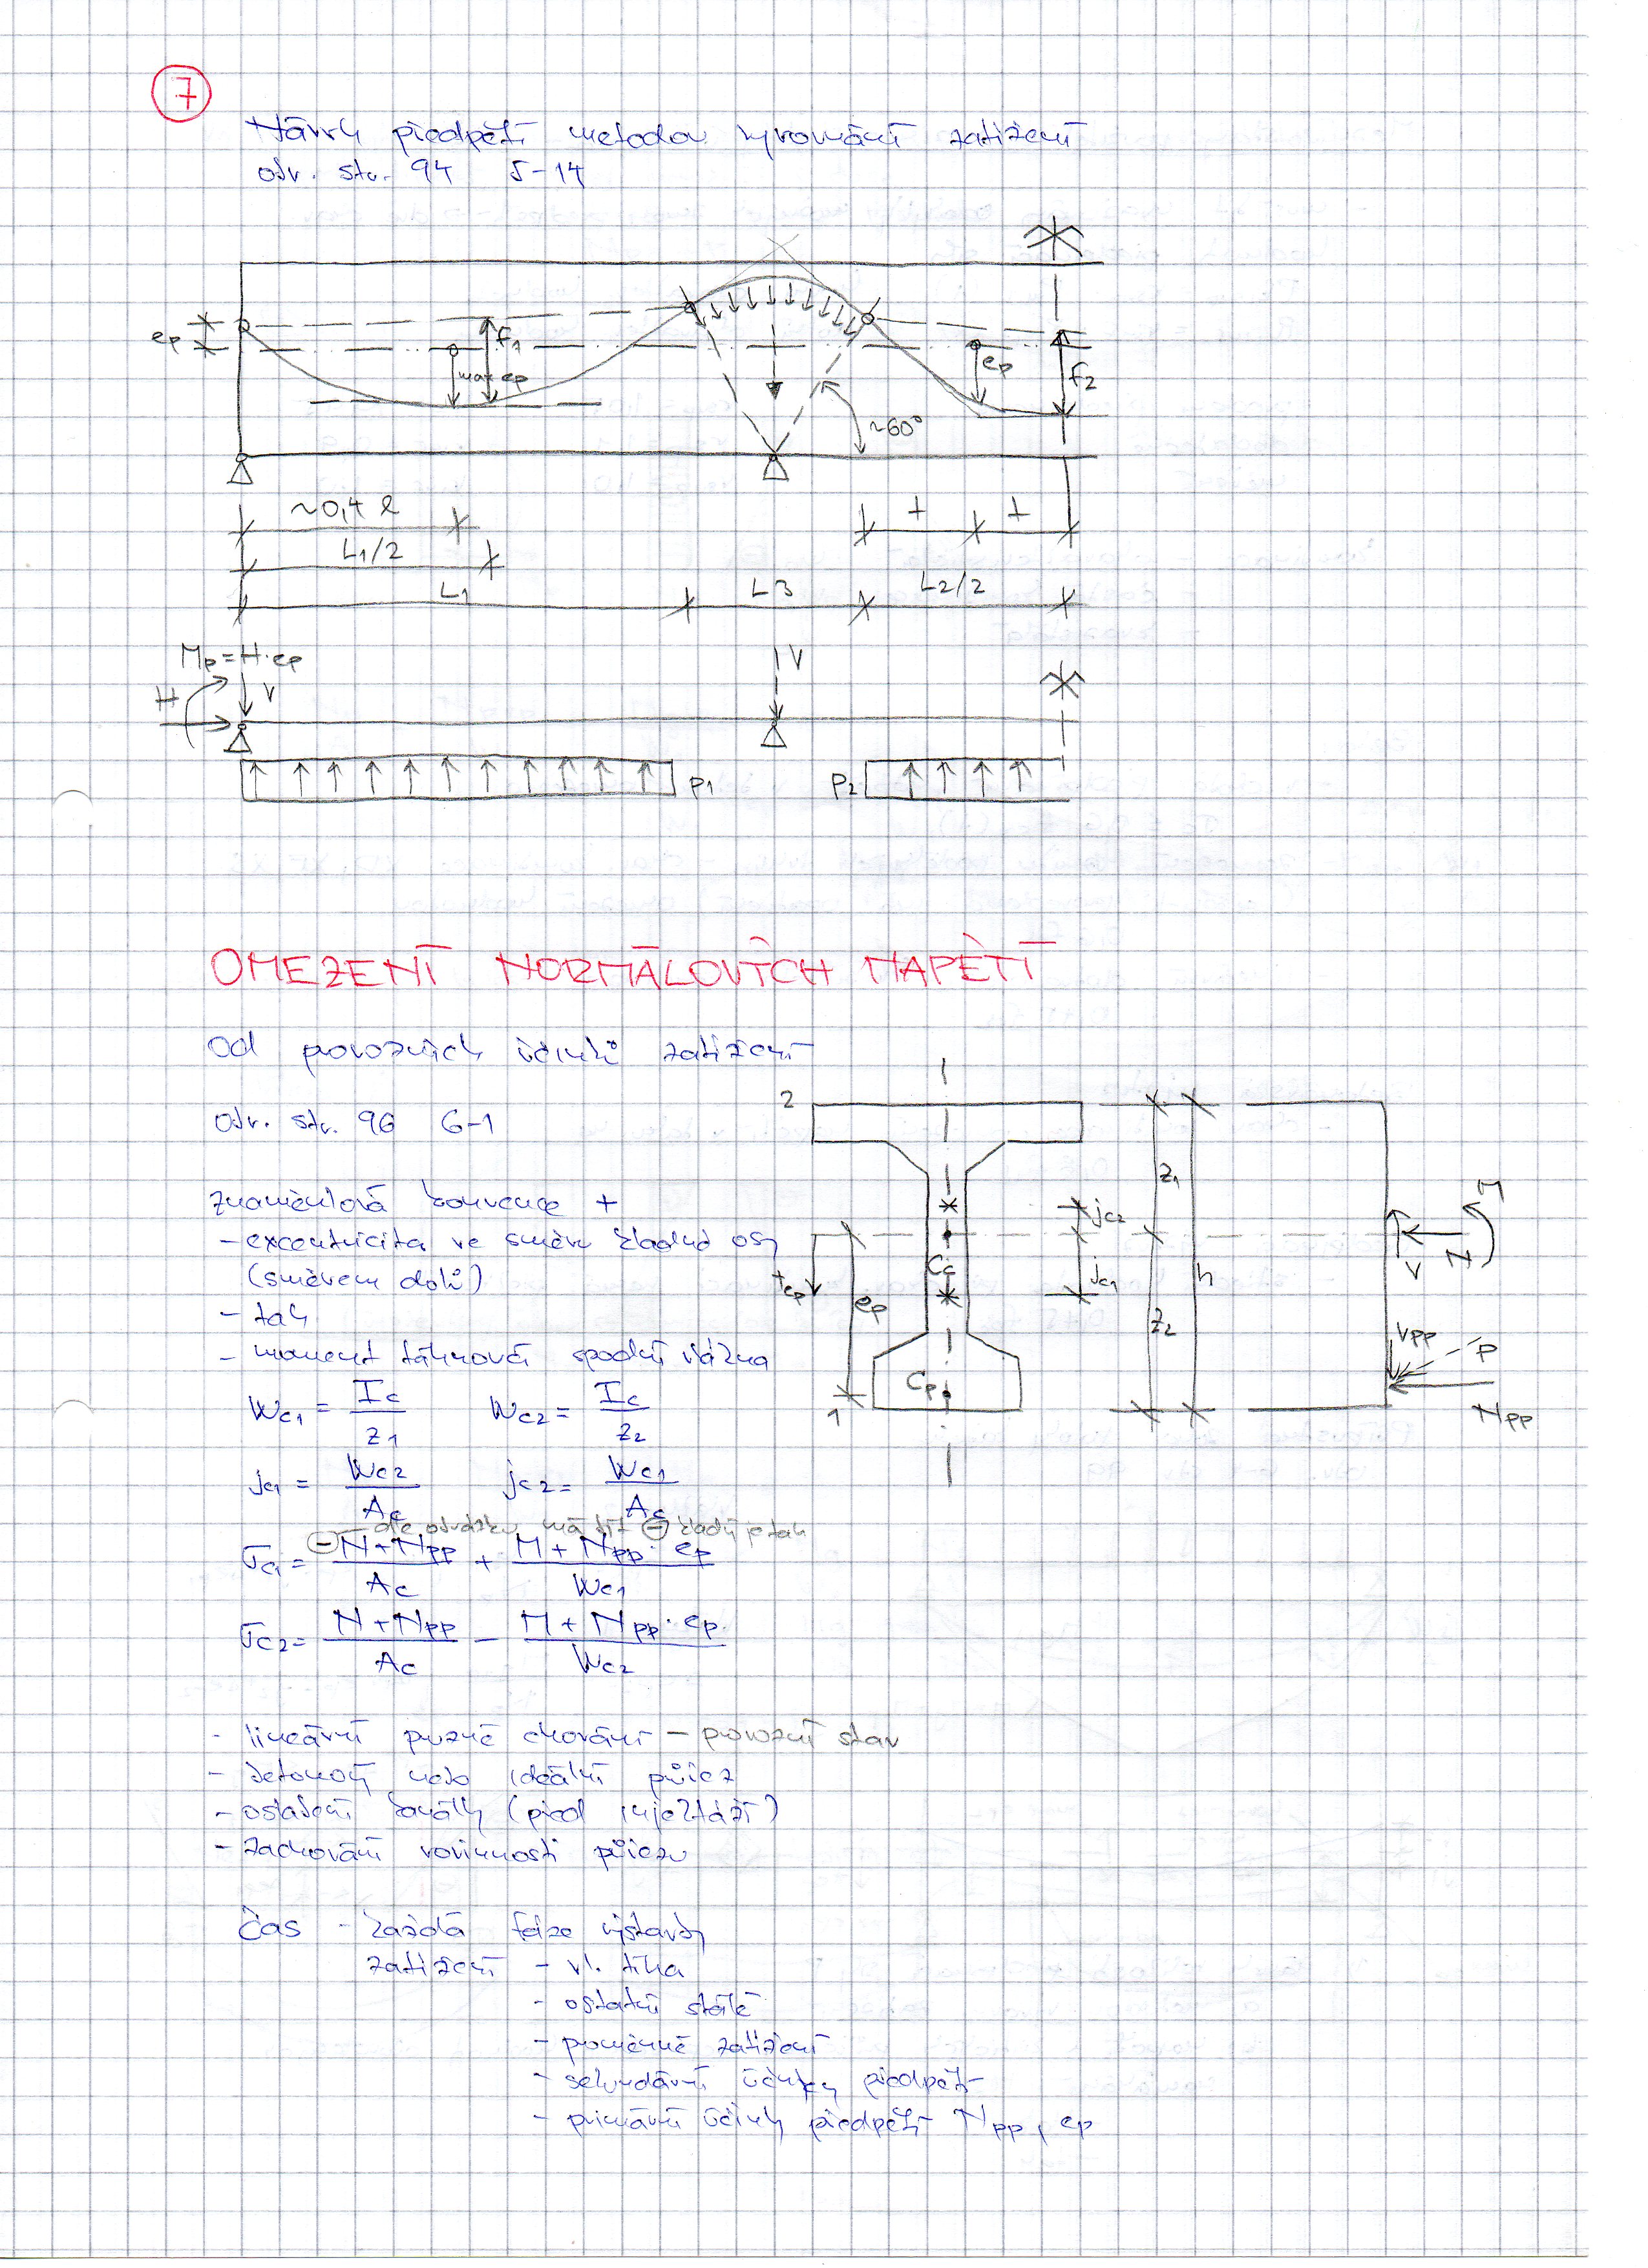 7
Návrh předpětí metodou vyrovnání zatížení
obr. str. 94 5-14
ep
f1
max ep
ep
f2
~60°
~0,4 l
L1/2
L1
L3
L2/2
Mp=H·ep
H
V
V
p1
p2
OMEZENÍ NORMÁLOVÝCH NAPĚTÍ
Od provozních účinků zatížení
Obr. str. 96 6-1
znaménková konvence +
- excentricita ve směru kladné osy
(směrem dolů)
- tah
- moment táhnoucí spodní vlákna
Wc1 = Ic/z1 Wc2 = Ic/z2
jc1 = Wc2/Ac jc2 = Wc1/Ac
dle obrázku má být ⊖ kladný je tah
σc1 = ⊖ (N+Npp)/Ac + (M+Npp·ep)/Wc1
σc2 = (N+Npp)/Ac − (M+Npp·ep)/Wc2
2
+ep
ep
Cc
Cp
1
jc2
jc1
z1
z2
h
M
N
V
Vpp
P
Npp
- lineární pružné chování - provozní stav
- betonový nebo ideální průřez
- oslabení kanálky (před injektáží)
- zachování rovinnosti průřezu
Čas - každá fáze výstavby
zatížení - vl. tíha
- ostatní stálé
- proměnné zatížení
- sekundární účinky předpětí
- primární účinky předpětí Npp, ep